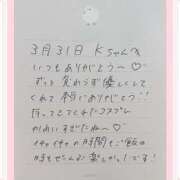 3月31日 Kちゃんへ
いつもありがとう〜♡
ずっと変わらず優しくして
くれて本当にありがとう!!
持ってきてくれたコスプレ
かわいすぎたね〜♡
イチャイチャの時間もご飯の
時もぜーんぶ楽しかったです!